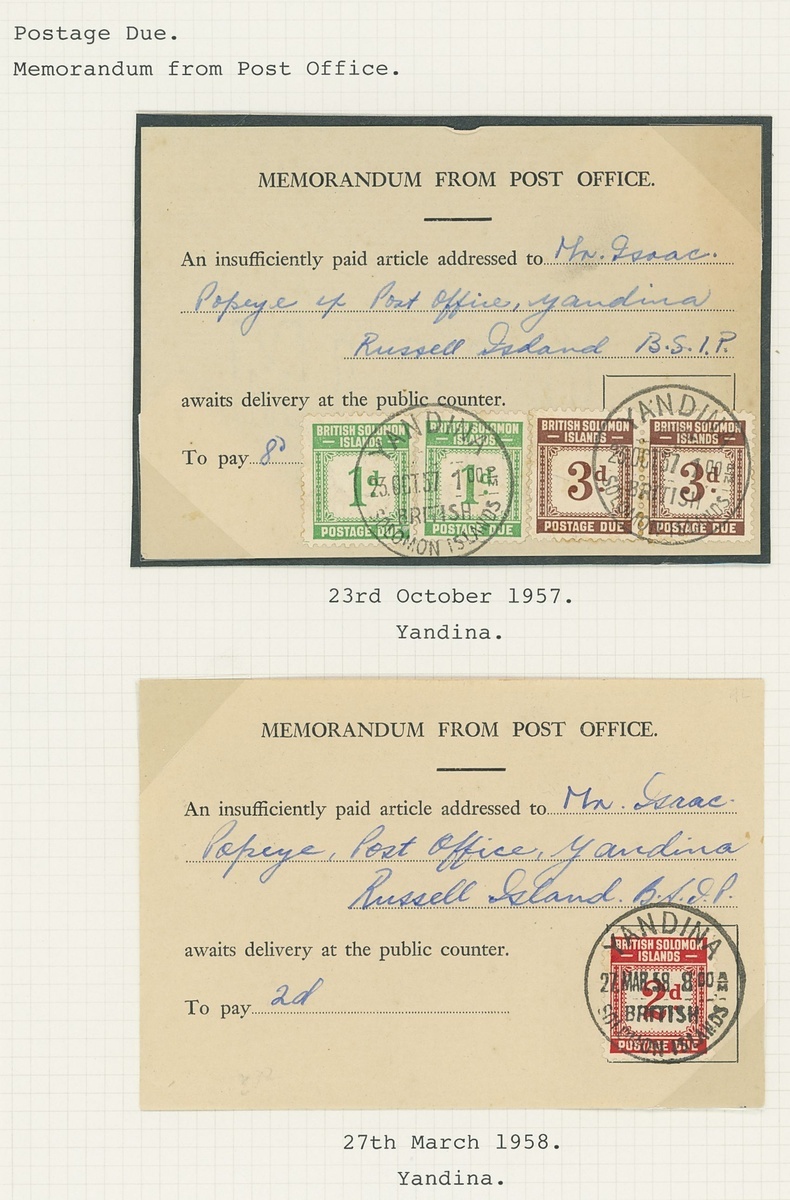 Postage Due.
Memorandum from Post Office.
MEMORANDUM FROM POST OFFICE.
An insufficiently paid article addressed to Mr. Isaac.
Popeye of Post Office, Yandina
Russell Island B.S.I.P.
awaits delivery at the public counter.
To pay 8d
BRITISH SOLOMON ISLANDS
1d
POSTAGE DUE
BRITISH SOLOMON ISLANDS
1d
POSTAGE DUE
YANDINA
23 OCT 57 1 00 PM
BRITISH SOLOMON ISLANDS
BRITISH SOLOMON ISLANDS
3d
POSTAGE DUE
BRITISH SOLOMON ISLANDS
3d
POSTAGE DUE
YANDINA
23 OCT 57 1 00 PM
BRITISH SOLOMON ISLANDS
23rd October 1957.
Yandina.
MEMORANDUM FROM POST OFFICE.
An insufficiently paid article addressed to Mr. Isaac.
Popeye, Post Office, Yandina
Russell Island. B.S.I.P.
awaits delivery at the public counter.
To pay 2d
BRITISH SOLOMON ISLANDS
2d
POSTAGE DUE
YANDINA
27 MAR 58 8 00 AM
BRITISH SOLOMON ISLANDS
27th March 1958.
Yandina.